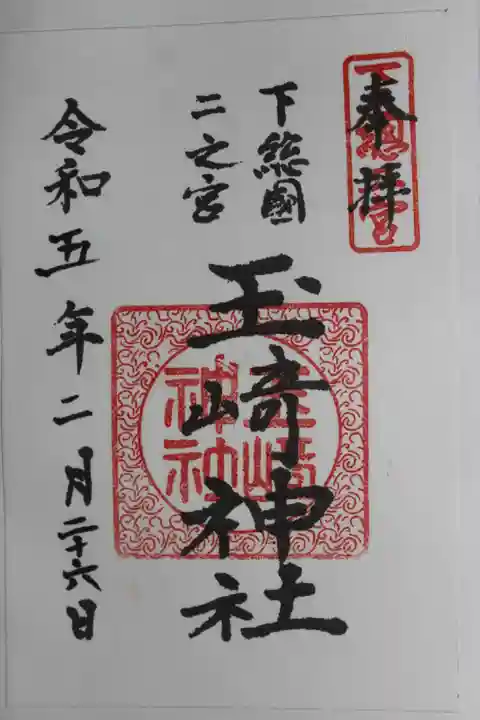 奉拝
下総二宮
下総國
二之宮
玉﨑神社
玉崎神社
令和五年二月二十六日